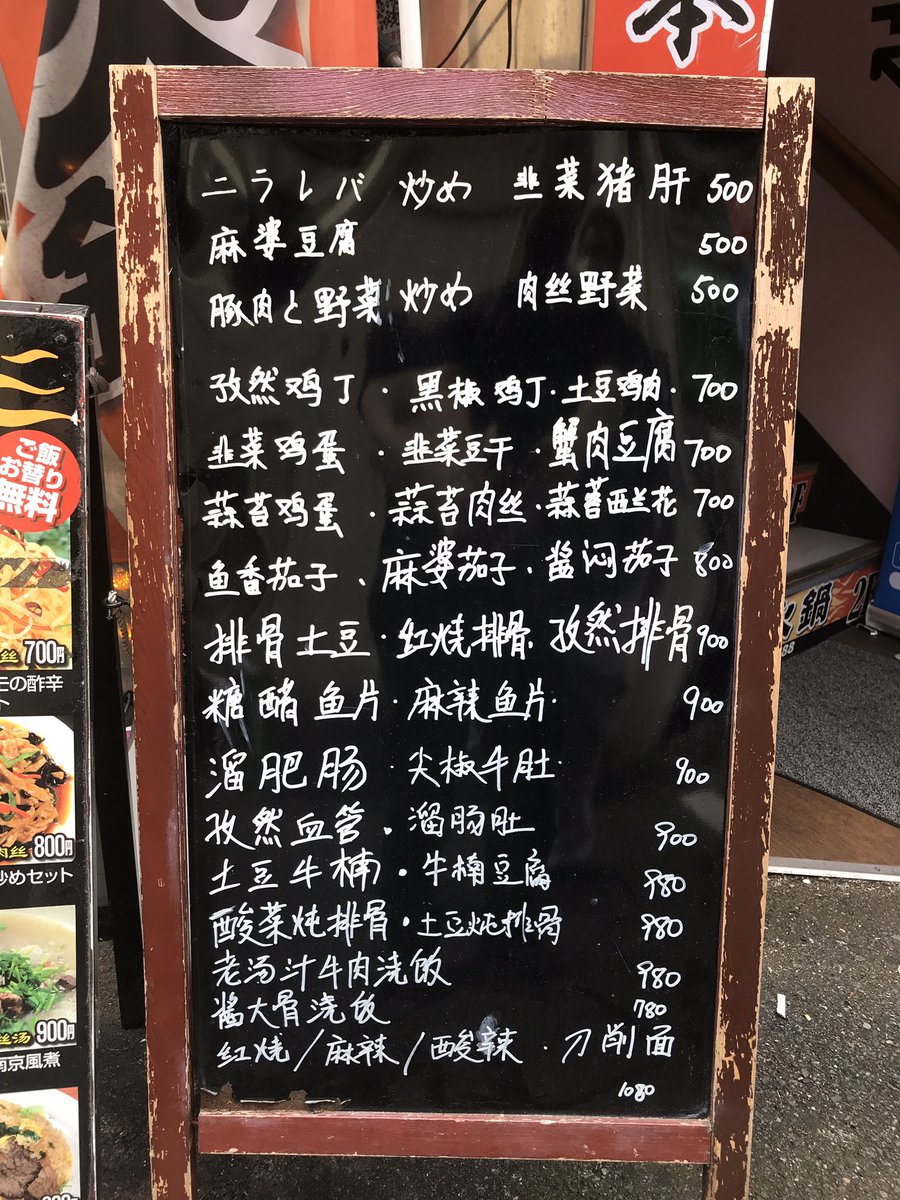 本
ニラレバ 炒め 韭菜猪肝 500
麻婆豆腐 500
豚肉と野菜 炒め 肉丝野菜 500
孜然鸡丁·黑椒鸡丁·土豆鸡肉·700
韭菜鸡蛋·韭菜豆干·蟹肉豆腐 700
蒜苔鸡蛋·蒜苔肉丝·蒜蓉西兰花 700
鱼香茄子、麻婆茄子、酱闷茄子 800
排骨土豆·红烧排骨 孜然排骨 900
糖醋鱼片·麻辣鱼片· 900
溜肥肠·尖椒牛肚· 900
孜然血管·溜肠肚 900
土豆牛楠·牛楠豆腐 980
酸菜炖排骨·土豆炖排骨 980
老汤汁牛肉浇饭 980
酱大骨浇饭 780
红烧/麻辣/酸辣·刀削面
1080
ご飯
お替り
無料
丝 700円
の酢辛
ト
肉丝 800円
炒めセット
丝汤 900円
南京風煮
火鍋 2
88